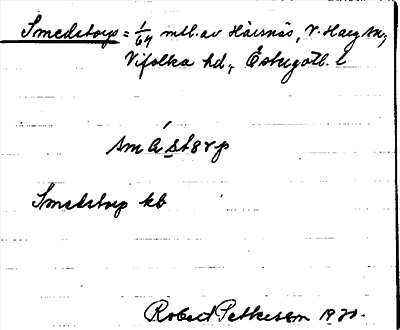 Smedstorp = 1/64 mtl. av Hårsnäs, V. Harg sn,
Vifolka hd, Östergötl. l
Smedstorp kb
Robert Petterson 1930.